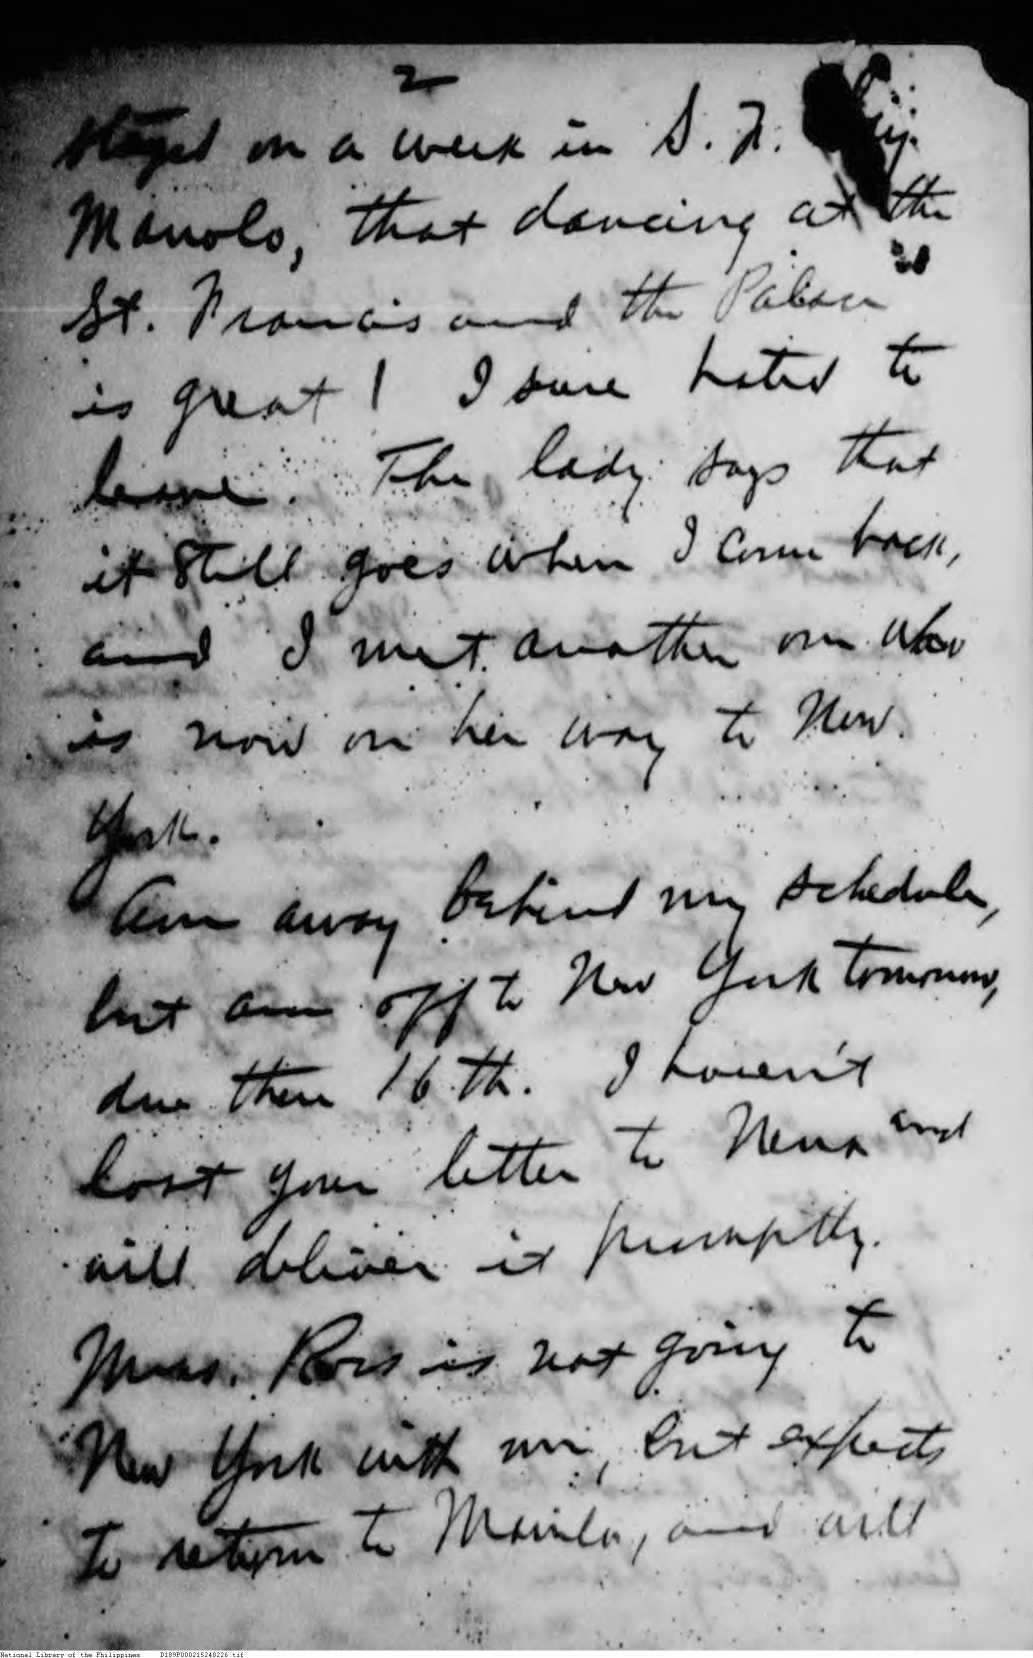 2
stayed on a week in S. F.
Manolo, that dancing at the
St. Francis and the Palace
is great! I sure hated to
leave. The lady says that
it still goes when I come back,
and I met another one who
is now on her way to New
York.
Am away behind my schedule,
but am off to New York tomorrow,
due there 16th. I haven't
lost your letter to Nena and
will deliver it promptly.
Mrs. Ross is not going to
New York with me, but expects
to return to Manila, and will
National Library of the Philippines D189P000215240226.tif